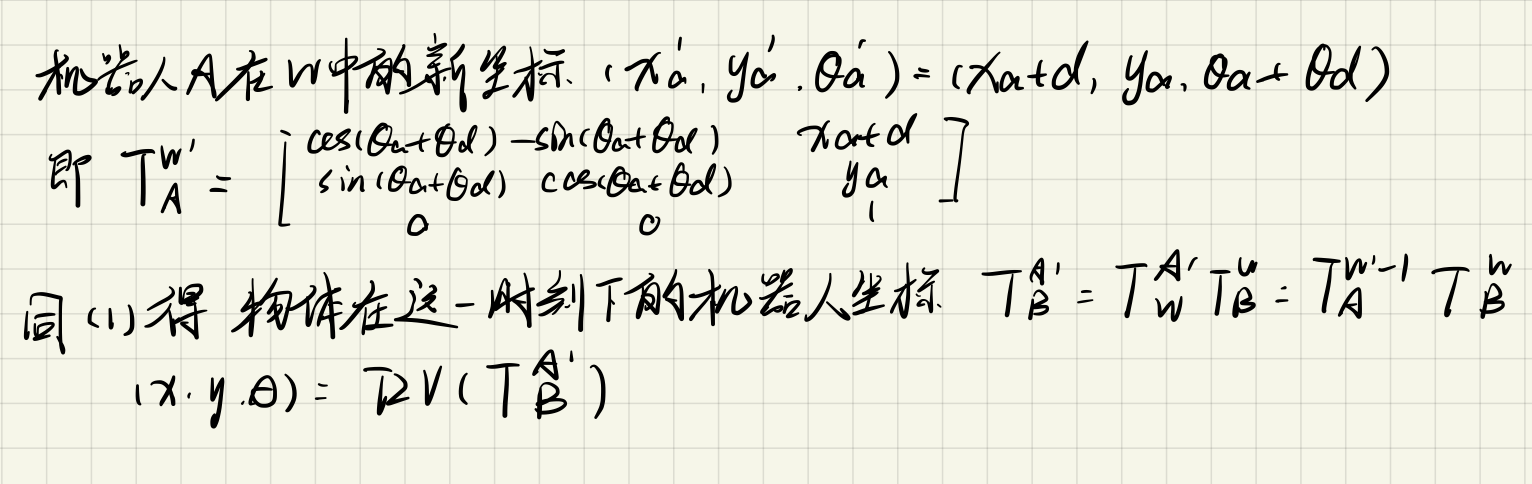 机器人A在W中的新坐标. (xa', ya', θa') = (xa+d, ya, θa+θd)
即 T_A^W' = [ cos(θa+θd) -sin(θa+θd) xa+d ]
sin(θa+θd) cos(θa+θd) ya
0 0 1
同(1)得 物体在这一时刻下的机器人坐标. T_B^A' = T_W^A' T_B^W = T_A^W'-1 T_B^W
(x, y, θ) = T2V(T_B^A')